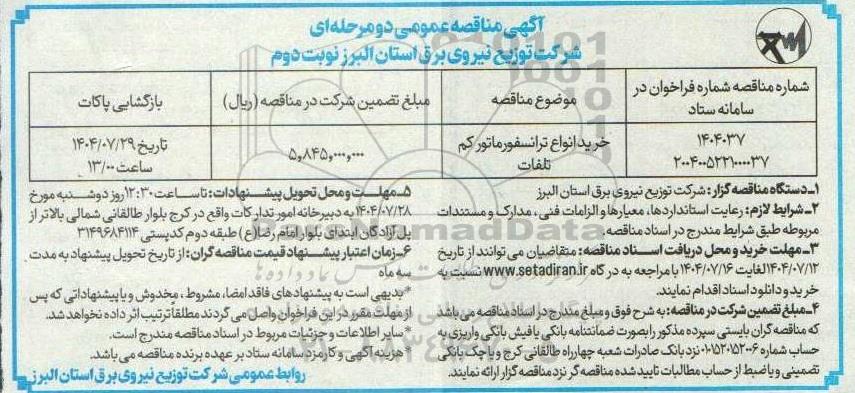 آگهی مناقصه عمومی دو مرحله‌ای
شرکت توزیع نیروی برق استان البرز نوبت دوم
شماره مناقصه شماره فراخوان در سامانه ستاد
موضوع مناقصه
مبلغ تضمین شرکت در مناقصه (ریال)
بازگشایی پاکات
۱۴۰۴۰۳۷
۲۰۰۴۰۰۵۲۲۱۰۰۰۰۳۷
خرید انواع ترانسفورماتور کم تلفات
۵,۸۴۵,۰۰۰,۰۰۰
تاریخ ۱۴۰۴/۰۷/۲۹
ساعت ۱۳/۰۰
۱ـ دستگاه مناقصه گزار: شرکت توزیع نیروی برق استان البرز
۲ـ شرایط لازم: رعایت استانداردها، معیارها و الزامات فنی، مدارک و مستندات
مربوطه طبق شرایط مندرج در اسناد مناقصه.
۳ـ مهلت خرید و محل دریافت اسناد مناقصه: متقاضیان می توانند از تاریخ
۱۴۰۴/۰۷/۱۲ لغایت ۱۴۰۴/۰۷/۱۶ با مراجعه به در گاه www.setadiran.ir نسبت به
خرید و دانلود اسناد اقدام نمایند.
۴ـ مبلغ تضمین شرکت در مناقصه: به شرح فوق و مبلغ مندرج در اسناد مناقصه می باشد
که مناقصه گران بایستی سپرده مذکور را بصورت ضمانتنامه بانکی یا فیش بانکی واریزی به
حساب شماره ۰۱۰۱۵۲۰۱۵۲۰۰۶ نزد بانک صادرات شعبه چهارراه طالقانی کرج و یا چک بانکی
تضمینی و یا ضبط از حساب مطالبات تایید شده مناقصه گر نزد مناقصه گزار ارائه نمایند.
۵ـ مهلت و محل تحویل پیشنهادات: تا ساعت ۱۲:۳۰ روز دوشنبه مورخ
۱۴۰۴/۰۷/۲۸ به دبیرخانه امور تدارکات واقع در کرج بلوار طالقانی شمالی بالاتر از
پل آزادگان ابتدای بلوار امام رضا(ع) طبقه دوم کدپستی ۳۱۴۹۶۸۴۱۱۴
۶ـ زمان اعتبار پیشنهاد قیمت مناقصه گران: از تاریخ تحویل پیشنهاد به مدت
سه ماه
*بدیهی است به پیشنهادهای فاقد امضا، مشروط، مخدوش و یا پیشنهاداتی که پس
از مهلت مقرر در این فراخوان واصل می گردند مطلقا ترتیب اثر داده نخواهد شد.
*سایر اطلاعات و جزئیات مربوط در اسناد مناقصه مندرج است.
*هزینه آگهی و کارمزد سامانه ستاد بر عهده برنده مناقصه می باشد.
روابط عمومی شرکت توزیع نیروی برق استان البرز